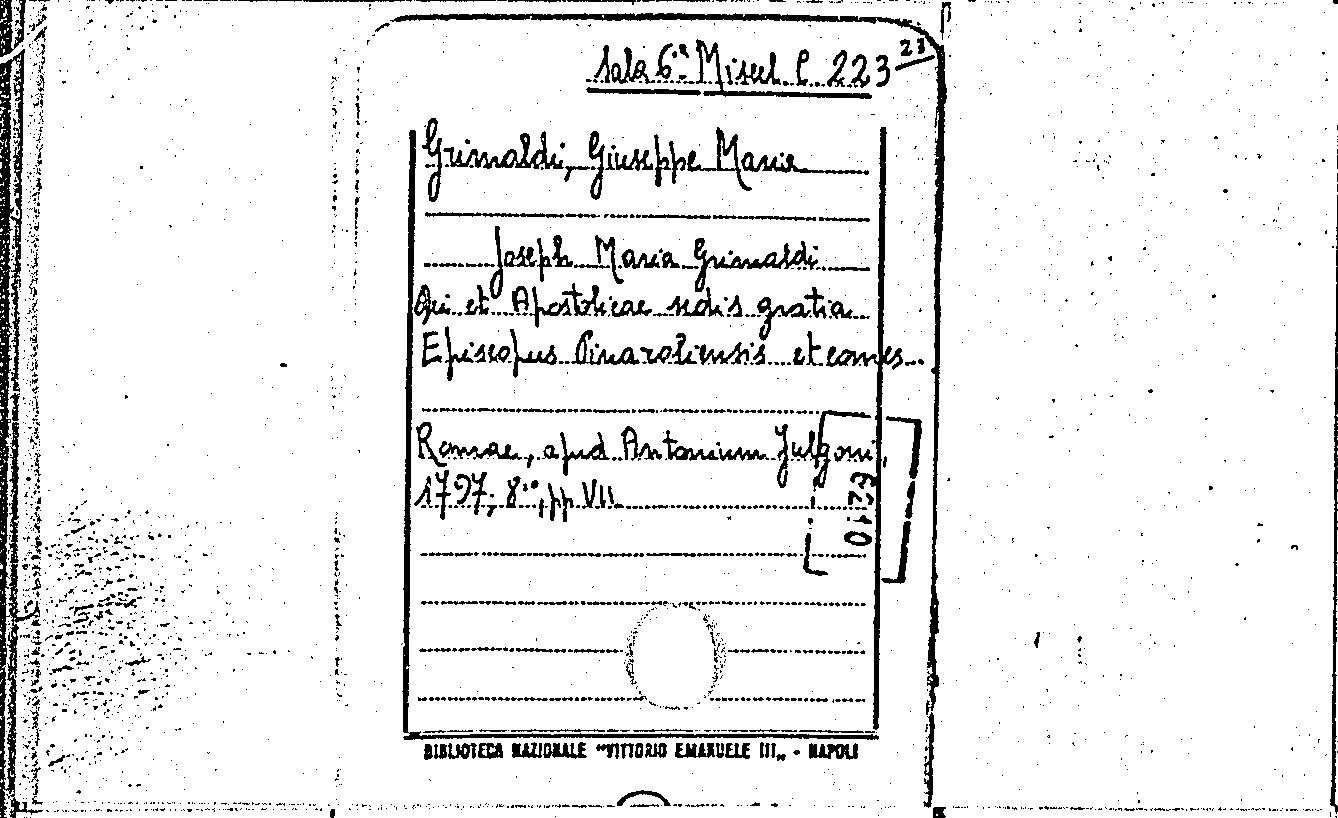 Sala 6.a Miscel. C 223 23
Grimaldi, Giuseppe Maria
Joseph Maria Grimaldi
Dei et Apostolicae sedis gratia
Episcopus Pinaroliensis et comes...
Romae, apud Antonium Fulgoni,
1797, 8°, pp VII
6210
BIBLIOTECA NAZIONALE "VITTORIO EMANUELE III„ - NAPOLI